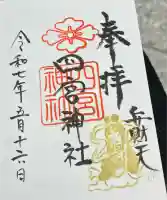 奉拝
四宮神社
弁財天
令和七年五月十六日